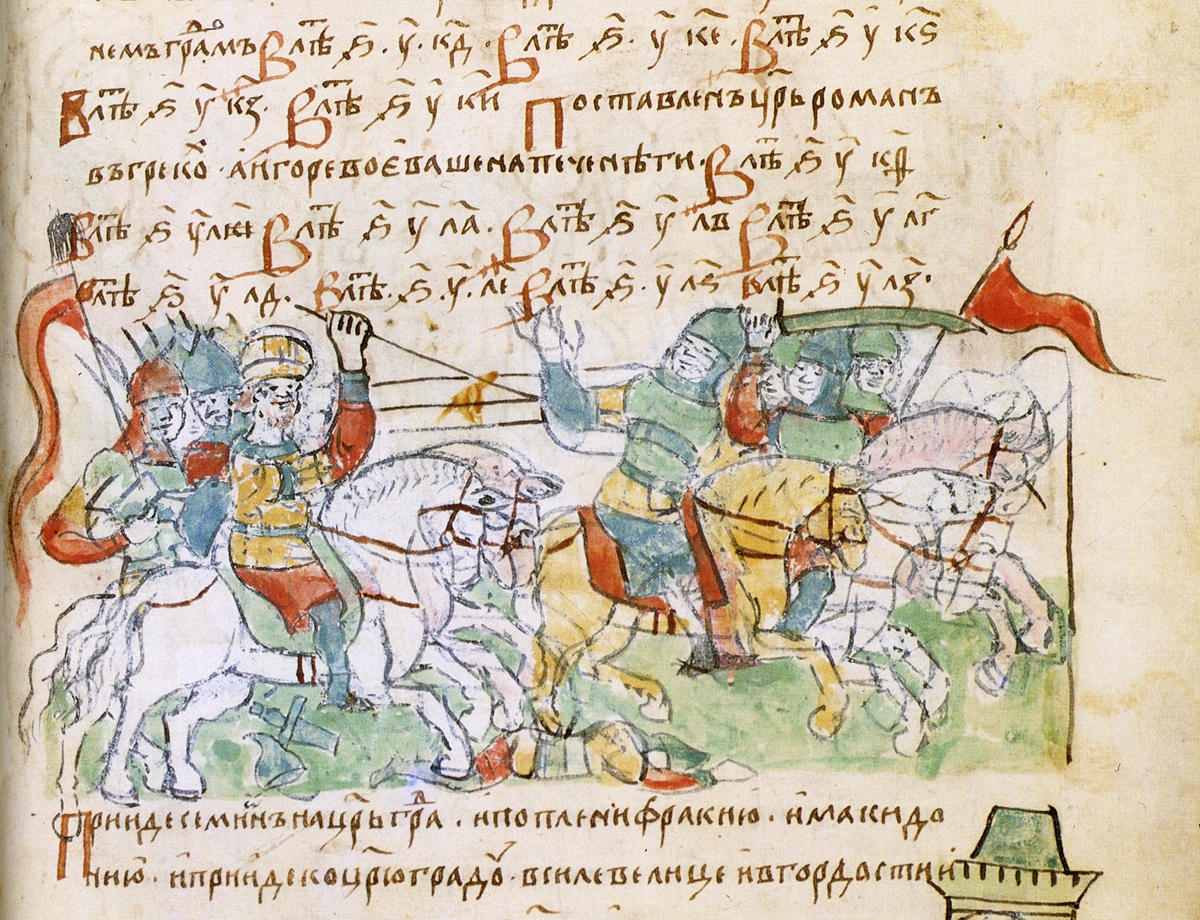 немъ гра҃мъ В лт҃ѣ ҂ѕ҃ · у҃ · кд · В лт҃ѣ ҂ѕ҃ · у҃ ке · В лт҃ѣ ҂ѕ҃ у҃ кѕ
В лт҃ѣ ҂ѕ҃ у҃ кз В лт҃ѣ ҂ѕ҃ у҃ ки Поставленъ цр҃ь романъ
въ греко · а игоре воєваше на печенѣги · В лт҃ѣ ҂ѕ҃ у҃ кѳ
В лт҃ѣ ҂ѕ҃ у҃ В лт҃ѣ ҂ѕ҃ у҃ ла · В лт҃ѣ ҂ѕ҃ у҃ лв В лт҃ѣ ҂ѕ҃ у҃ лг
В лт҃ѣ ҂ѕ҃ у҃ лд · В лт҃ѣ · ҂ѕ҃ · у҃ · ле В лт҃ѣ ҂ѕ҃ · у҃ лѕ В лт҃ѣ ҂ѕ҃ у҃ лз ·
Прииде семинъ на цр҃ьгра · и поплени фракию · и макидо
нию · и прииде ко цр҃юградоу · в силе велице и в гордости и